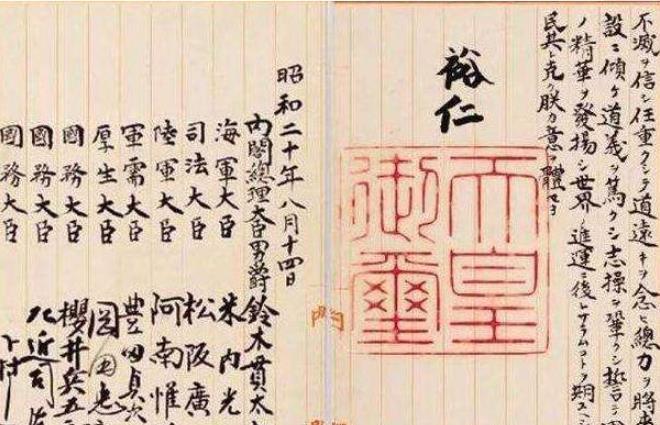 不滅ヲ信シ任重クシテ道遠キヲ念ヒ總力ヲ將來
設ニ傾ケ道義ヲ篤クシ志操ヲ鞏クシ誓テ
ノ精華ヲ發揚シ世界ノ進運ニ後レサラムコトヲ期スヘシ
民其レ克ク朕カ意ヲ體セヨ
裕仁
天皇
御璽
昭和二十年八月十四日
內閣總理大臣男爵鈴木貫太
海軍大臣 米內光
司法大臣 松阪廣
陸軍大臣 阿南惟
軍需大臣 豊田貞次
厚生大臣 岡田忠
國務大臣 櫻井兵五
國務大臣 左近司
國務大臣 下村